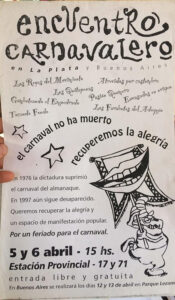 encuentro
CARNAVALERO
en La Plata y Buenos Aires
Los Reyes del Movimiento
Atrevidos por costumbre
Los Quitapenas
Tocando Fondo
el carnaval no ha muerto
recuperemos la alegría
En 1976 la dictadura suprimió
el carnaval del almanaque.
En 1997 aún sigue desaparecido.
Queremos recuperar la alegría y
un espacio de manifestación popular.
Por un feriado para el carnaval.
5 y 6 abril - 15 hs.
Estación Provincial - 17 y 71
entrada libre y gratuita
En Buenos Aires se realizará los días 12 y 13 de abril en Parque